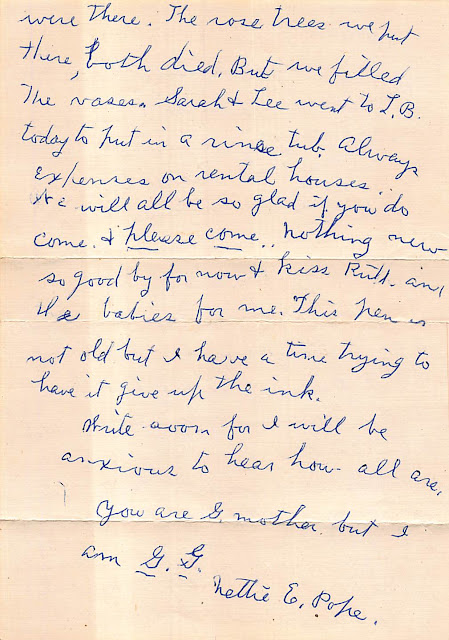 were there. The rose trees we put
there, both died. But we filled
the vases. Sarah & Lee went to L.B.
today to put in a rinse tub. Always
expenses on rental houses.
We will all be so glad if you do
come. & please come.. Nothing new
so good by for now & kiss Ruth. and
the babies for me. This pen is
not old but I have a time trying to
have it give up the ink.
Write soon for I will be
anxious to hear how all are.
You are G. mother. but I
am G. G.
Nettie E. Pope.